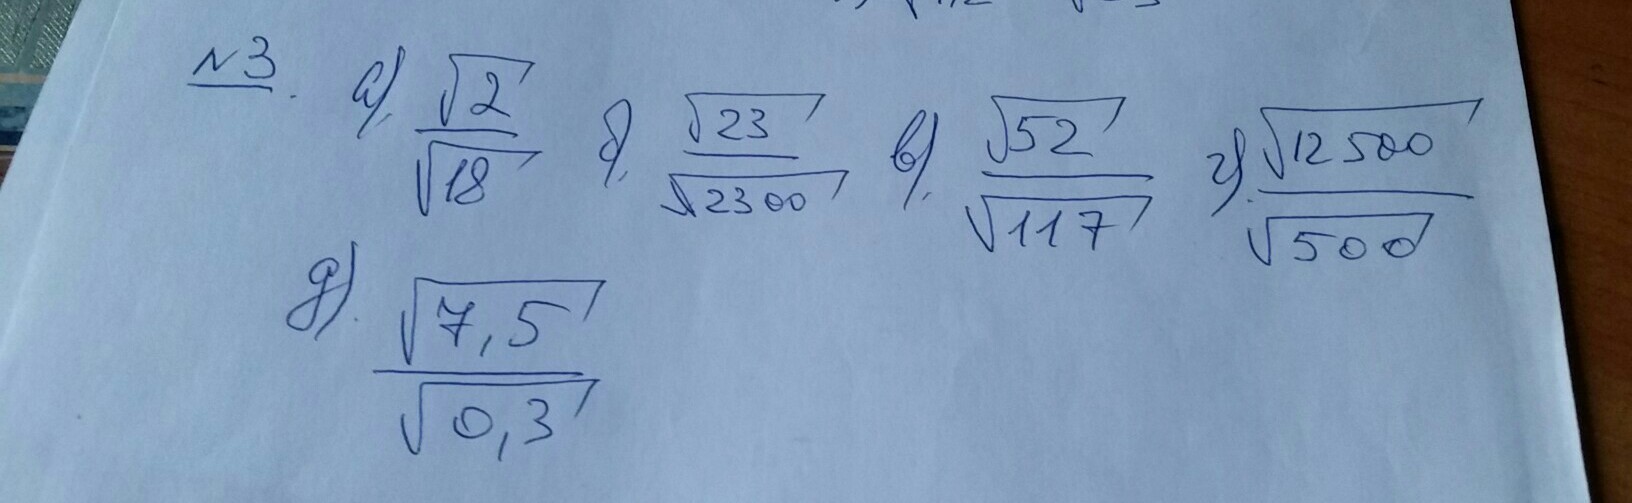 №3. а). √2/√18 б). √23/√2300 в). √52/√117 г). √12500/√500
д). √7,5/√0,3